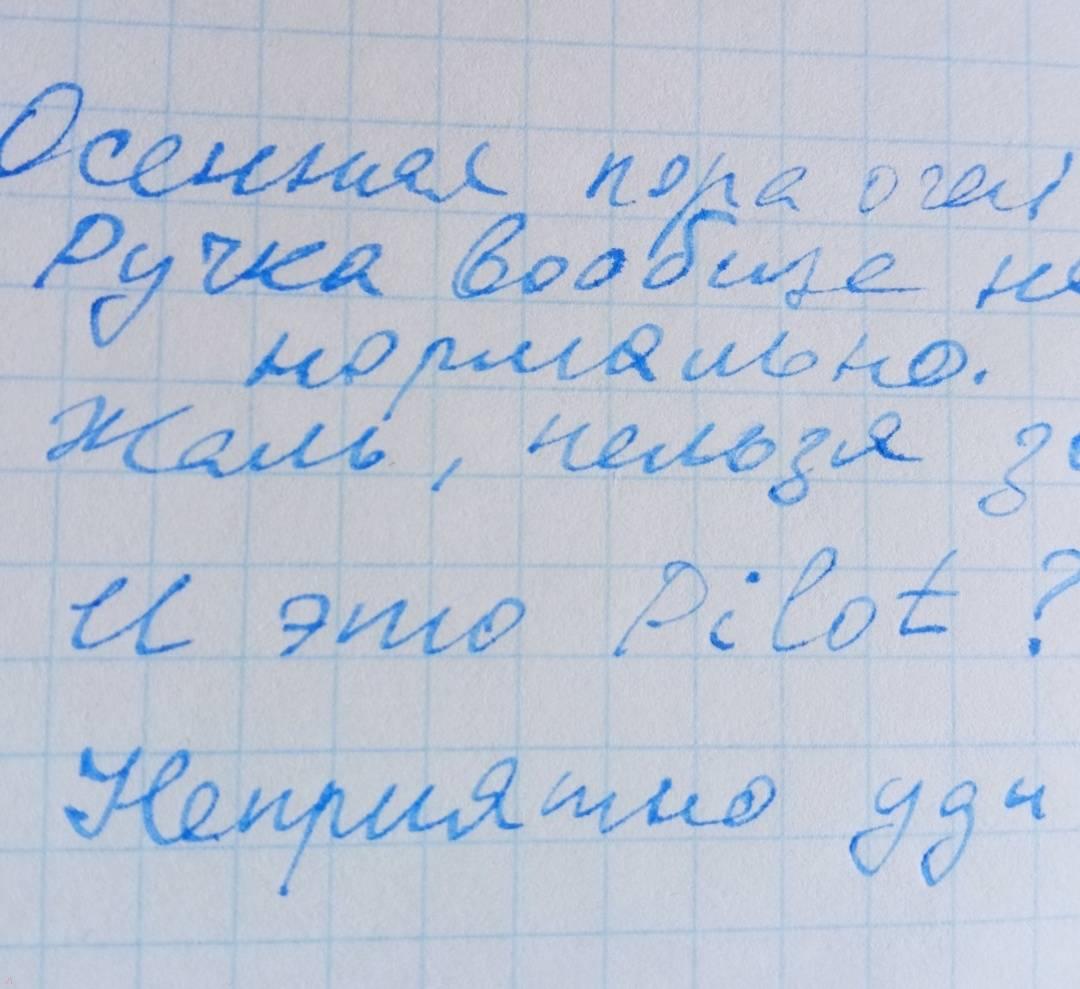 Осенняя пора очей
Ручка вообще не
нормально.
Жаль, нельзя
И это Pilot?
Неприятно